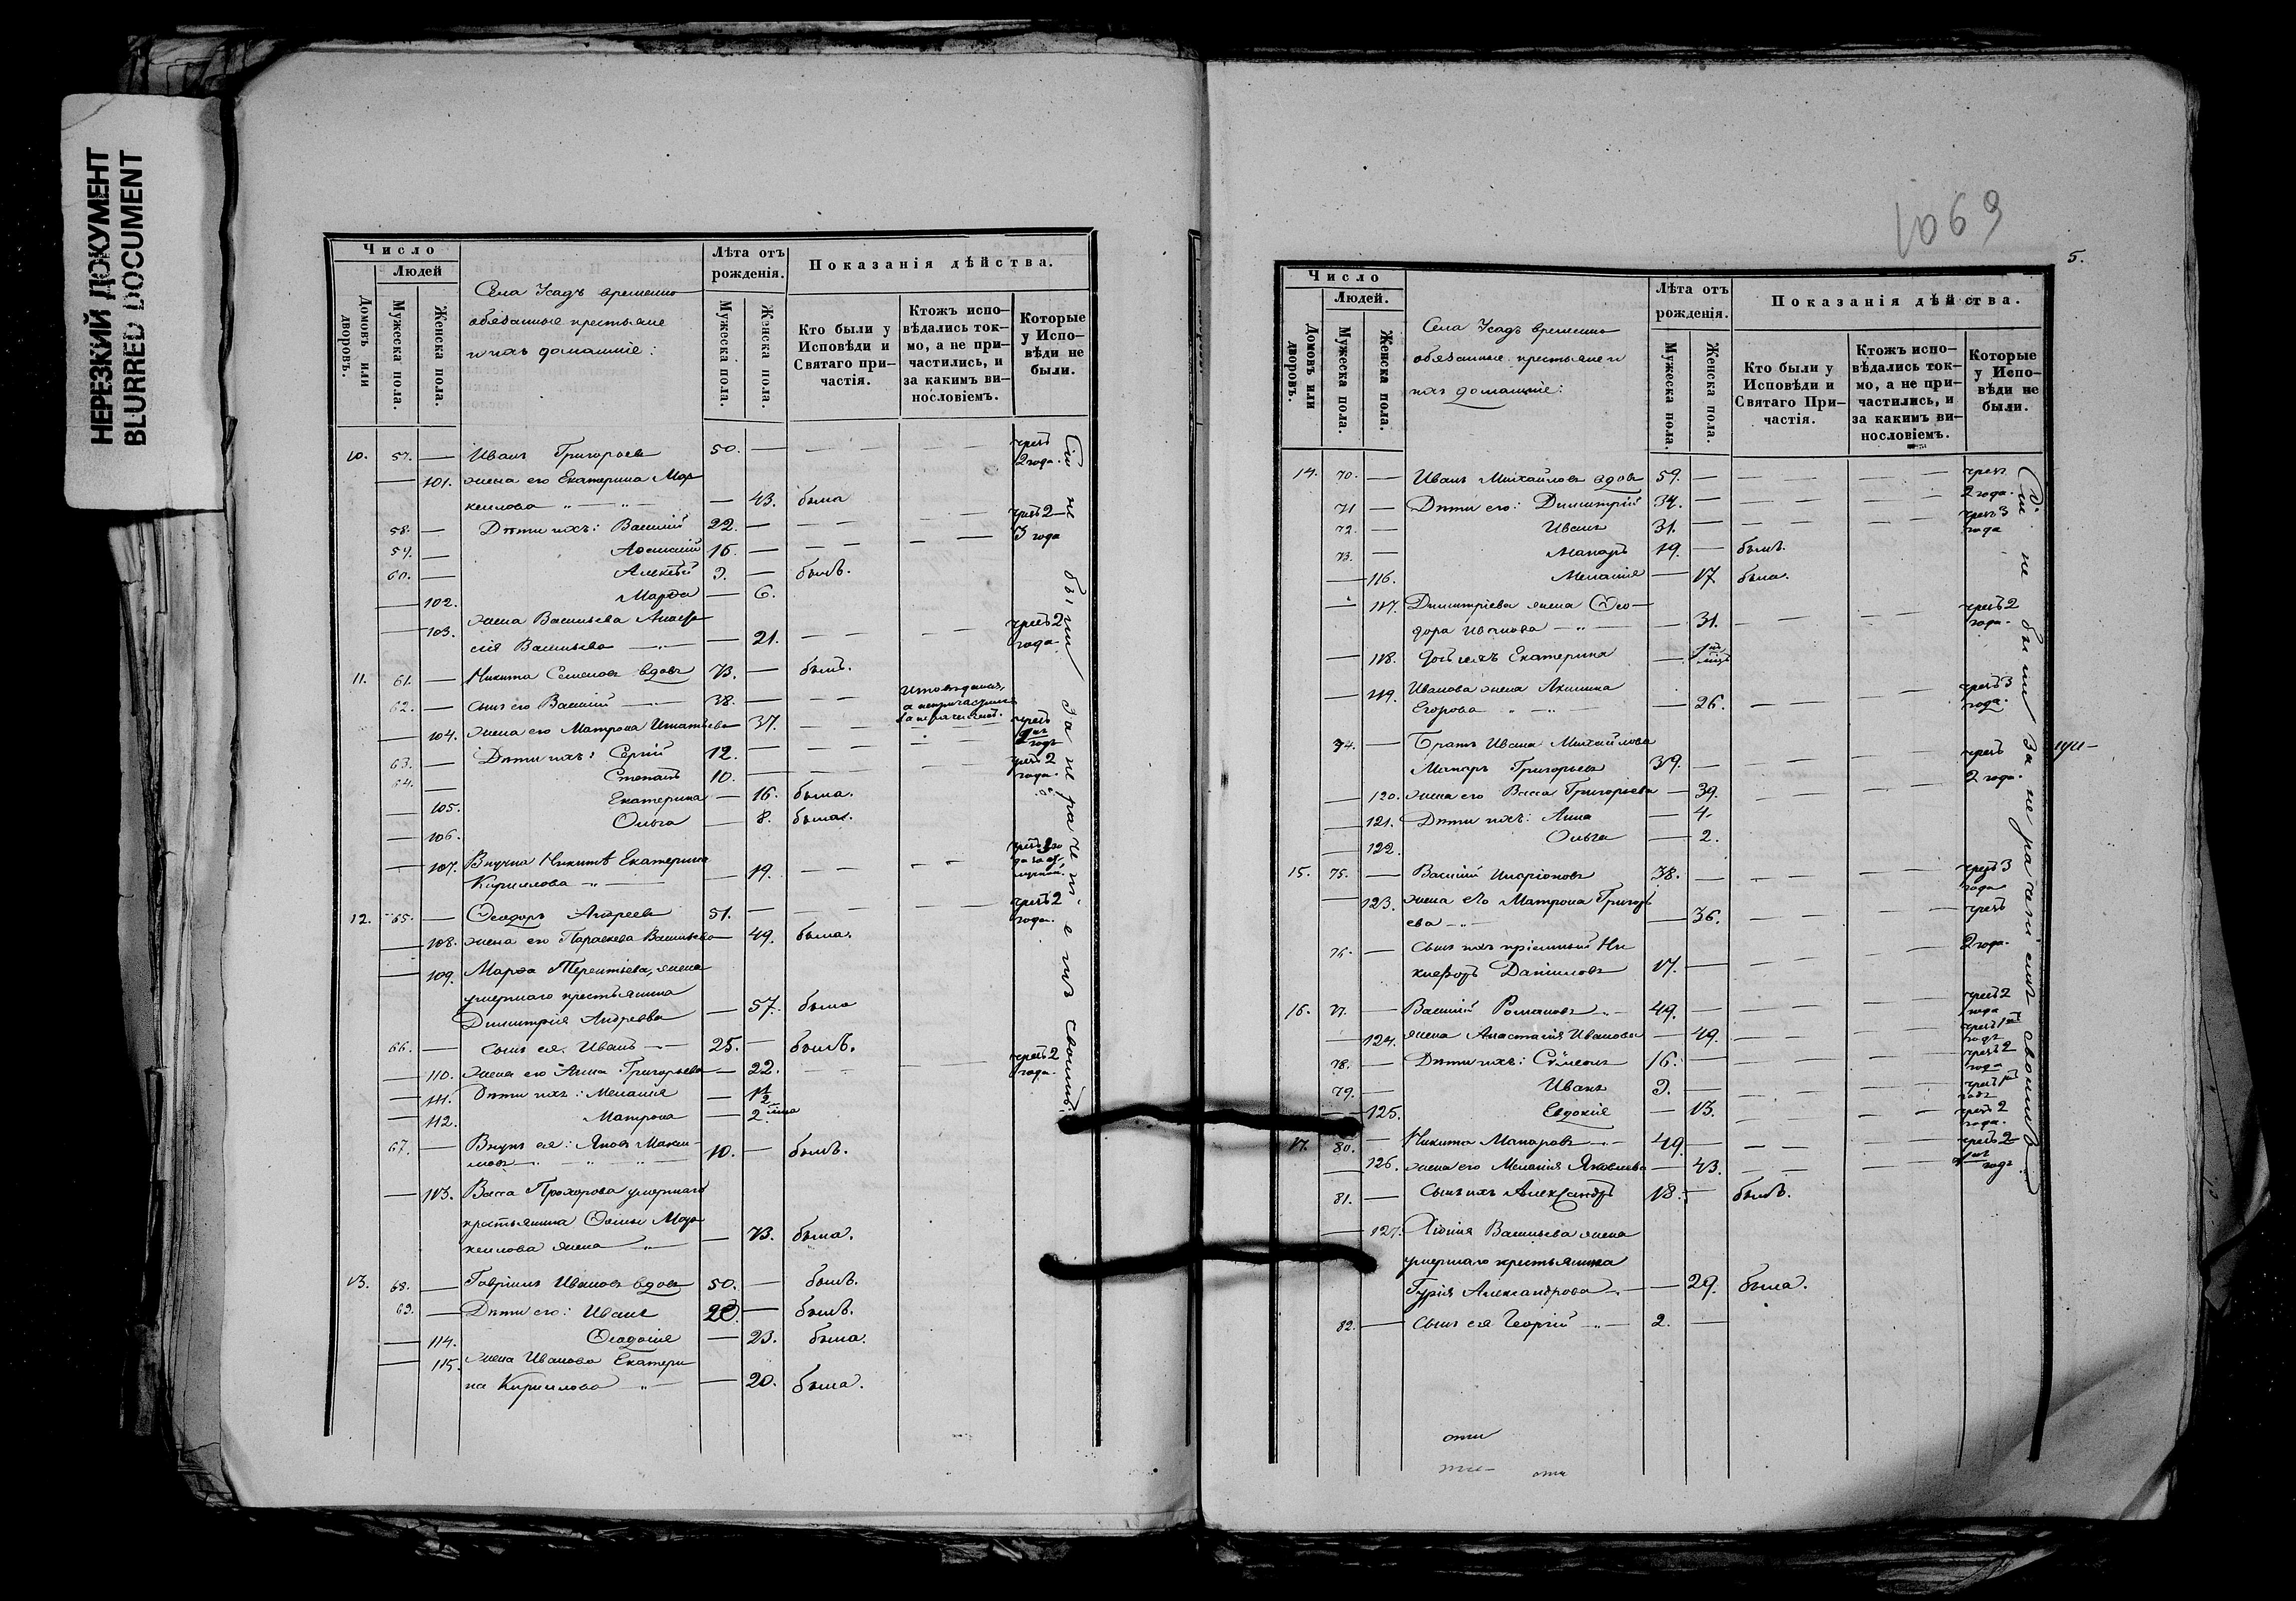 НЕРЕЗКИЙ ДОКУМЕНТ
BLURRED DOCUMENT
Число
Людей
Домовъ или дворовъ.
Мужеска пола.
Женска пола.
Села Усадъ временно
обязанные крестьяне
и ихъ домашніе:
Лѣта отъ рожденія.
Мужеска пола.
Женска пола.
Показанія дѣйства.
Кто были у Исповѣди и Святаго при-частія.
Ктожъ испо-вѣдались ток-мо, а не при-частились, и за какимъ ви-нословіемъ.
Которые у Испо-вѣди не были.
10. 57. — Иванъ Григорьевъ 50. — — — — чрезъ 2 года.
— 101. жена его Екатерина Мар-
келлова — 43. была
58. — Дѣти ихъ: Василій 22. — — — чрезъ 2
59. — 16. — — — 3 года
60. — Алексѣй 9. — былъ.
— 102. Марѳа — 6.
— 103. жена Васильева Анаста-
сія Васильева — 21. — — чрезъ 2 года.
11. 61. — Никита Семеновъ вдовъ 73. — былъ.
62. — сынъ его Василій 38. — — исповѣдался, а непричастился за нераченіемъ.
— 104. жена его Матрона Игнатьева — 37. — — чрезъ 1 годъ
63. — Дѣти ихъ: Сергій 12. — — —
64. — Степанъ 10. — — — чрезъ 2 года.
— 105. Екатерина — 16. была.
— 106. Ольга — 8. была.
— 107. Внучка Никитѣ Екатерина
Кириллова — 19. — —
12. 65. — Ѳеодоръ Андреевъ 51. — — — чрезъ 2 года.
— 108. жена его Параскева Васильева — 49. была.
— 109. Марѳа Терентьева, жена
умершаго крестьянина
Димитрія Андреева — 57. была
66. — сынъ ея Иванъ — 25. — былъ.
— 110. жена его Анна Григорьева — 22. — — чрезъ 2 года.
— 111. Дѣти ихъ: Меланія — 1½
— 112. Матрона — 2
67. — Внукъ ея: Яковъ Макси-
мовъ 10. — былъ.
— 113. Васса Прохорова умершаго
крестьянина Ѳомы Мар-
келлова жена — 73. была.
13. 68. — Гавріилъ Ивановъ вдовъ 50. — былъ.
69. — Дѣти его: Иванъ 20. — былъ.
— 114. Ѳеодосія — 23. была.
— 115. жена Иванова Екатери
на Кириллова — 20. была.
Сіи не были за нераченіемъ своимъ.
1069
5.
Число
Людей.
Домовъ или дворовъ.
Мужеска пола.
Женска пола.
Села Усадъ временно
обязанные крестьяне и
ихъ домашніе:
Лѣта отъ рожденія.
Мужеска пола.
Женска пола.
Показанія дѣйства.
Кто были у Исповѣди и Святаго При-частія.
Ктожъ испо-вѣдались ток-мо, а не при-частились, и за какимъ ви-нословіемъ.
Которые у Испо-вѣди не были.
14. 70. — Иванъ Михайловъ вдовъ 59. — — — чрезъ 2 года.
71 — Дѣти его: Димитрій 34. — — —
72. — Иванъ 31. — — — чрезъ 3 года
73. — Макаръ 19. — былъ.
— 116. Меланія — 17 была.
— 117. Димитріева жена Ѳео-
дора Иванова — 31. — — чрезъ 2 года.
— 118. дочь ихъ Екатерина —
— 119. Иванова жена Акилина
Егорова — 26. — — чрезъ 3 года.
74. — Братъ Ивана Михайлова
Макаръ Григорьевъ 39. — — — чрезъ 2 года.
— 120. жена его Васса Григорьева — 39. — —
— 121. Дѣти ихъ: Анна — 4.
— 122. Ольга — 2.
15. 75. — Василій Иларіоновъ 38. — — — чрезъ 3 года
— 123. жена его Матрона Григорь
ева — 36. — — чрезъ 2 года.
76. — Сынъ ихъ пріемный Ни
кифоръ Даниловъ 17. — — —
16. 77. — Василій Романовъ 49. — — — чрезъ 2 года
— 124. жена Анастасія Иванова — 49. — — чрезъ 1 годъ
78. — Дѣти ихъ: Сѵмеонъ 16. — — — чрезъ 2 года
79. — Иванъ 9. — — — чрезъ 1 годъ
— 125. Евдокія — 13. — — чрезъ 2 года.
17. 80. — Никита Макаровъ 49. — — — чрезъ 2
— 126. жена его Меланія Яковлева — 43. — — 1 годъ
81. — Сынъ ихъ Александръ 18. — былъ.
— 127. Хіонія Васильева жена
умершаго крестьянина
Гурія Александрова — 29. была.
82. — Сынъ ея Георгій 2. —
Сіи не были за нераченіемъ своимъ